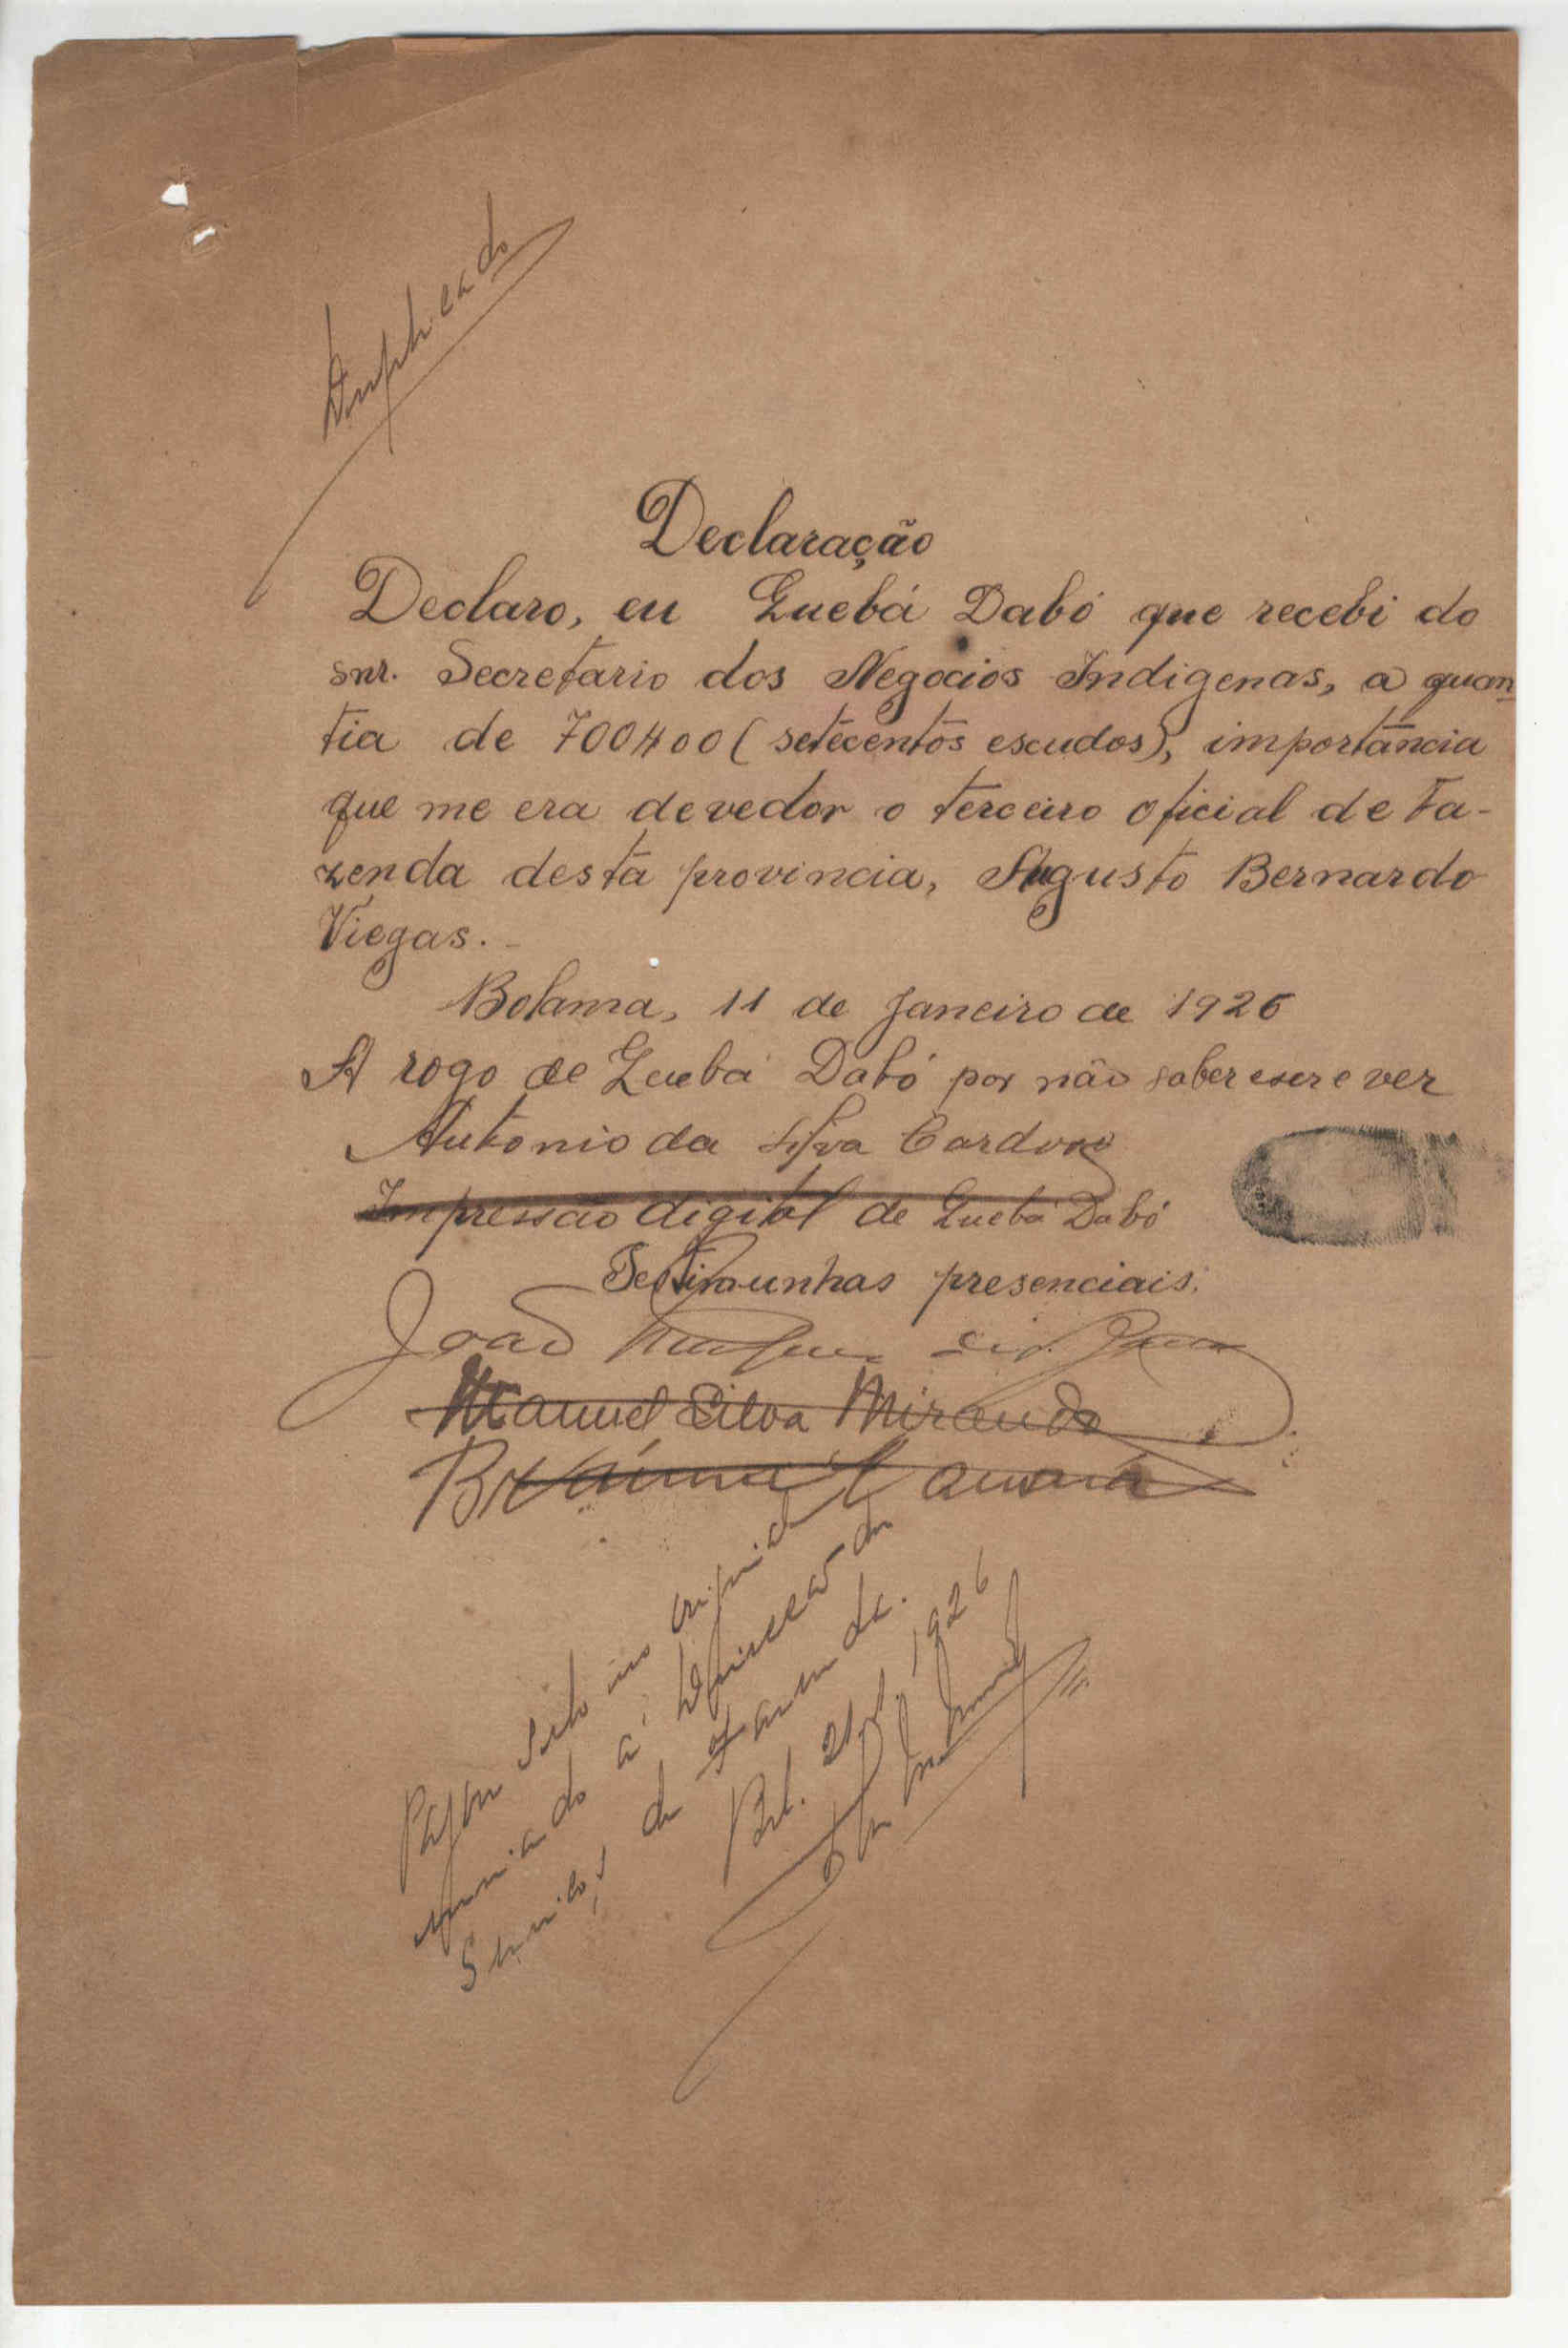 Duplicado
Declaração
Declaro, eu Quebá Dabó que recebi do
snr. Secretario dos Negocios Indigenas, a quan
tia de 700$00 (setecentos escudos), importância
que me era devedor o terceiro oficial de Fa-
zenda desta provincia, Augusto Bernardo
Viegas.
Bolama, 11 de Janeiro de 1926
A rogo de Quebá Dabó por não saber escrever
Antonio da Silva Cardoso
Impressão digital de Quebá Dabó
Testimunhas presenciais:
João
Manuel Silva Miranda
Camará
selo no original
enviado á Direcção dos
Serviços de Fazenda.
Bol. 21/1/1926